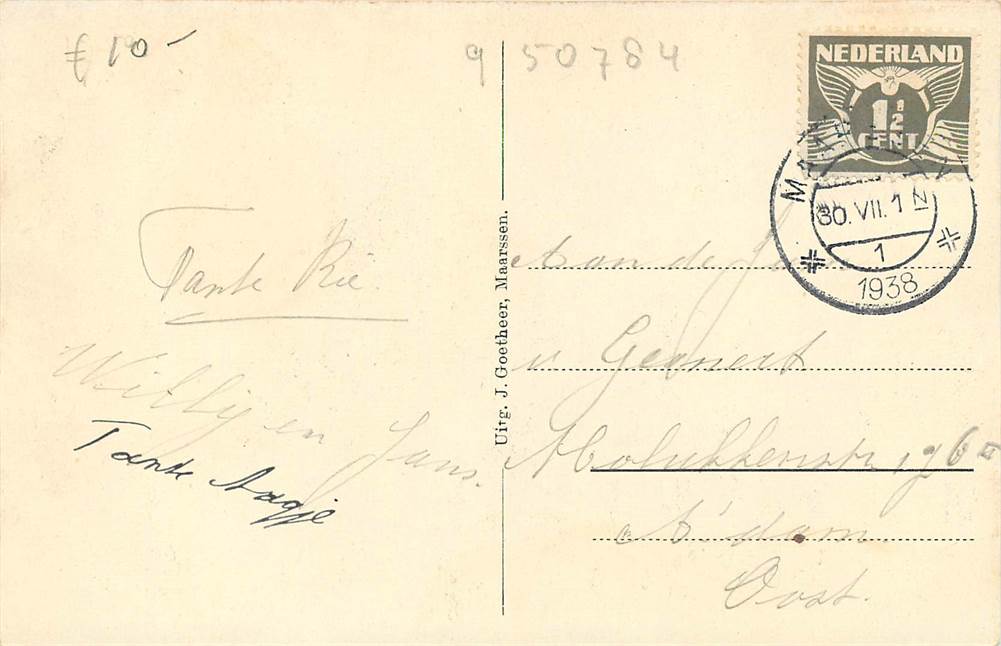 f 10'
9 50784
NEDERLAND
1 1/2
CENT
30.VII.1 N
1
1938
Tante Rie.
Willy en Jans.
Tante Aagje
Uitg. J. Goetheer, Maarssen.
Aan de
v. Gennert
Molukkenstr 196 II
A'dam.
Oost.